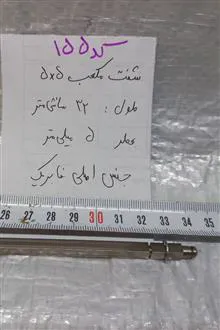 کد ۱۵۵
شفت مکعب ۵x۵
طول : ۳۲ سانتی‌متر
قطر ۵ میلی‌متر
جنس اصلی فابریک
26 27 28 29 30 31 32 33 34 35